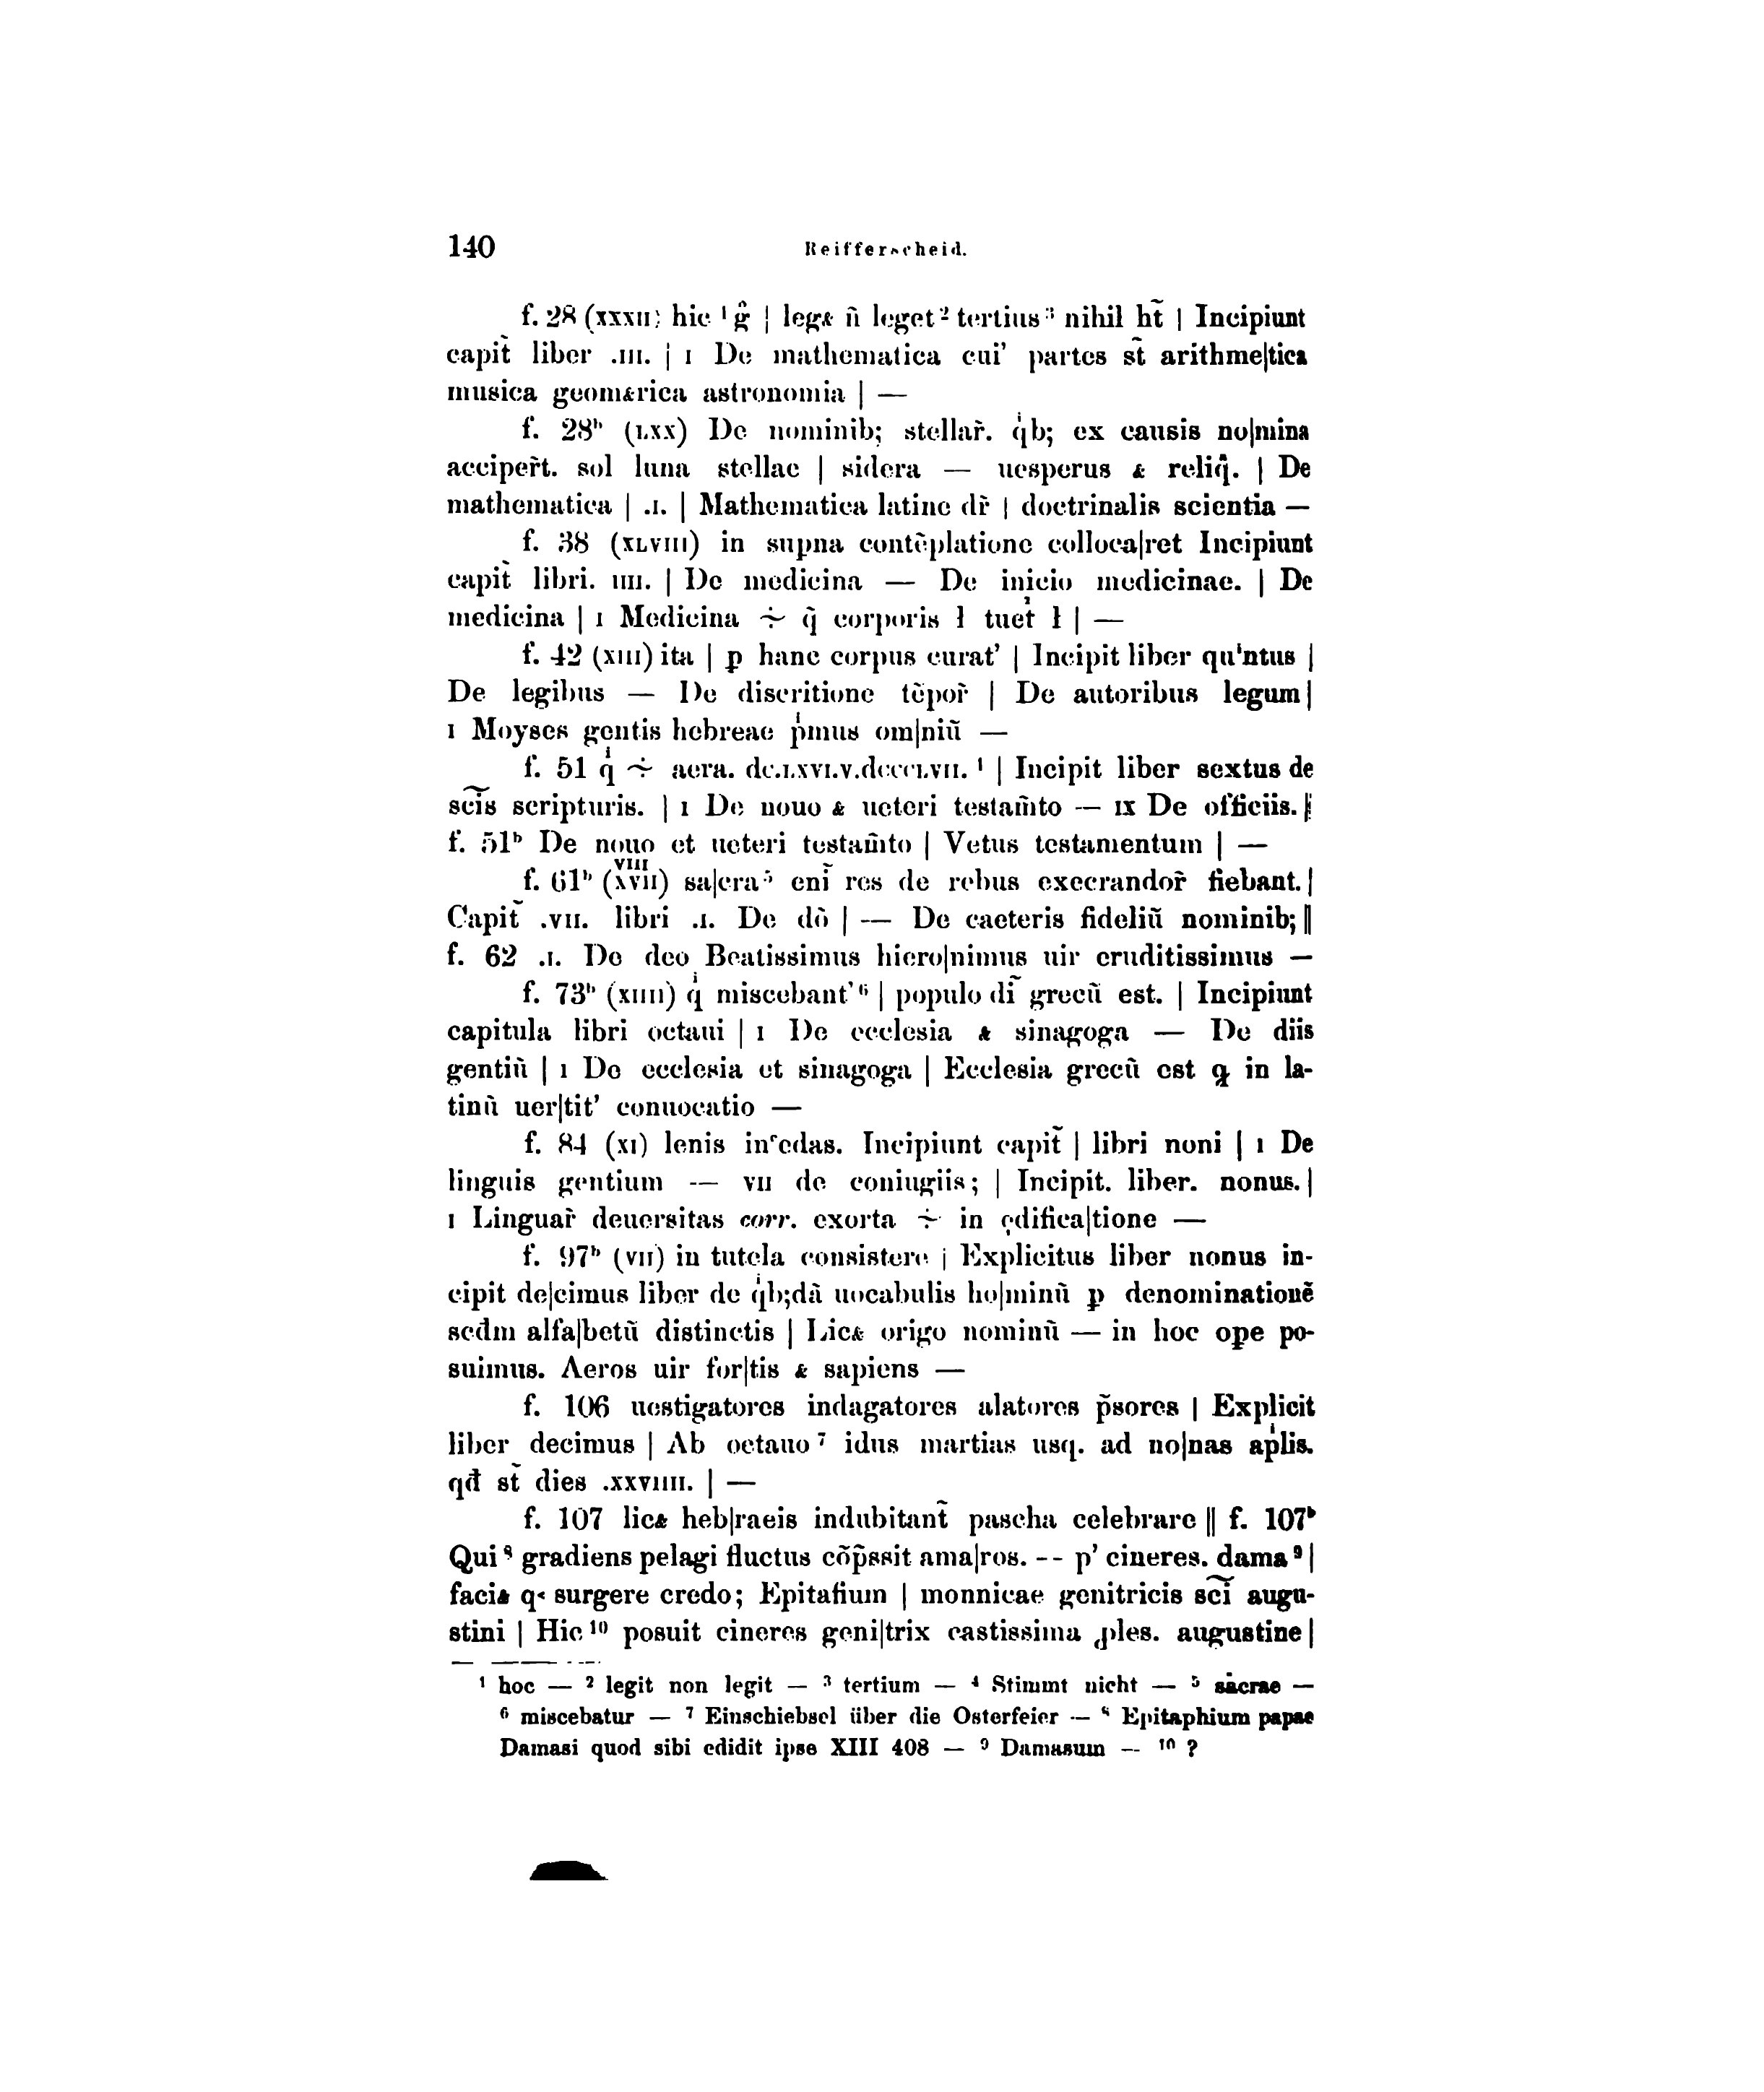 140 Reifferscheid.
f. 28 (xxxii) hic ¹ g̑ | leg& n̄ leget ² tertius ³ nihil ht̄ | Incipiunt
capit̄ liber .iii. | i De mathematica cui' partes st̄ arithme|tica
musica geom&rica astronomia | —
f. 28ᵇ (lxx) De nominib; stellar̄. qⁱb; ex causis no|mina
acciper̄t. sol luna stellae | sidera — uesperus & reliq̄. | De
mathematica | .i. | Mathematica latine dr̄ | doctrinalis scientia —
f. 38 (xlviii) in supna contēplatione colloca|ret Incipiunt
capit̄ libri. iiii. | De medicina — De inicio medicinae. | De
medicina | i Medicina ÷ q̄ corporis ł tuet̉ ł | —
f. 42 (xiii) ita | ꝑ hanc corpus curat' | Incipit liber quⁱntus |
De legibus — De discritione tēpor̄ | De autoribus legum |
i Moyses gentis hebreae pⁱmus om|niū —
f. 51 qⁱ ÷ aera. dc.lxvi.v.dccclvii. ⁴ | Incipit liber sextus de
sc̄is scripturis. | i De nouo & ueteri testam̄to — ix De officiis. ||
f. 51ᵇ De nouo et ueteri testam̄to | Vetus testamentum | —
f. 61ᵇ (xvii) viii sa|cra ⁵ enī res de rebus execrandor̄ fiebant. |
Capit̄ .vii. libri .i. De dō | — De caeteris fideliū nominib; ||
f. 62 .i. De deo Beatissimus hiero|nimus uir eruditissimus —
f. 73ᵇ (xiiii) qⁱ miscebant' ⁶ | populo dī grecū est. | Incipiunt
capitula libri octaui | i De ecclesia & sinagoga — De diis
gentiū | i De ecclesia et sinagoga | Ecclesia grecū est ꝗ in la-
tinū uer|tit' conuocatio —
f. 84 (xi) lenis inᶜedas. Incipiunt capit̄ | libri noni | i De
linguis gentium — vii de coniugiis; | Incipit. liber. nonus. |
i Linguar̄ deuersitas corr. exorta ÷ in ędifica|tione —
f. 97ᵇ (vii) in tutela consistere | Explicitus liber nonus in-
cipit de|cimus liber de qⁱb;dā uocabulis ho|minū ꝑ denominationē
sedm alfa|betū distinctis | Lic& origo nominū — in hoc oꝑe po-
suimus. Aeros uir for|tis & sapiens —
f. 106 uestigatores indagatores alatores p̄sores | Explicit
liber decimus | Ab octauo ⁷ idus martias usq. ad no|nas apⁱlis.
qđ st̄ dies .xxviiii. | —
f. 107 lic& heb|raeis indubitant̄ pascha celebrare || f. 107ᵇ
Qui ⁸ gradiens pelagi fluctus cōp̄ssit ama|ros. -- p' cineres. dama ⁹ |
faci& q‹ surgere credo; Epitafium | monnicae genitricis sc̄i augu-
stini | Hic ¹⁰ posuit cineres geni|trix castissima ꝓles. augustine |
¹ hoc — ² legit non legit — ³ tertium — ⁴ Stimmt nicht — ⁵ sacrae —
⁶ miscebatur — ⁷ Einschiebsel über die Osterfeier — ⁸ Epitaphium papae
Damasi quod sibi edidit ipse XIII 408 — ⁹ Damasum — ¹⁰ ?